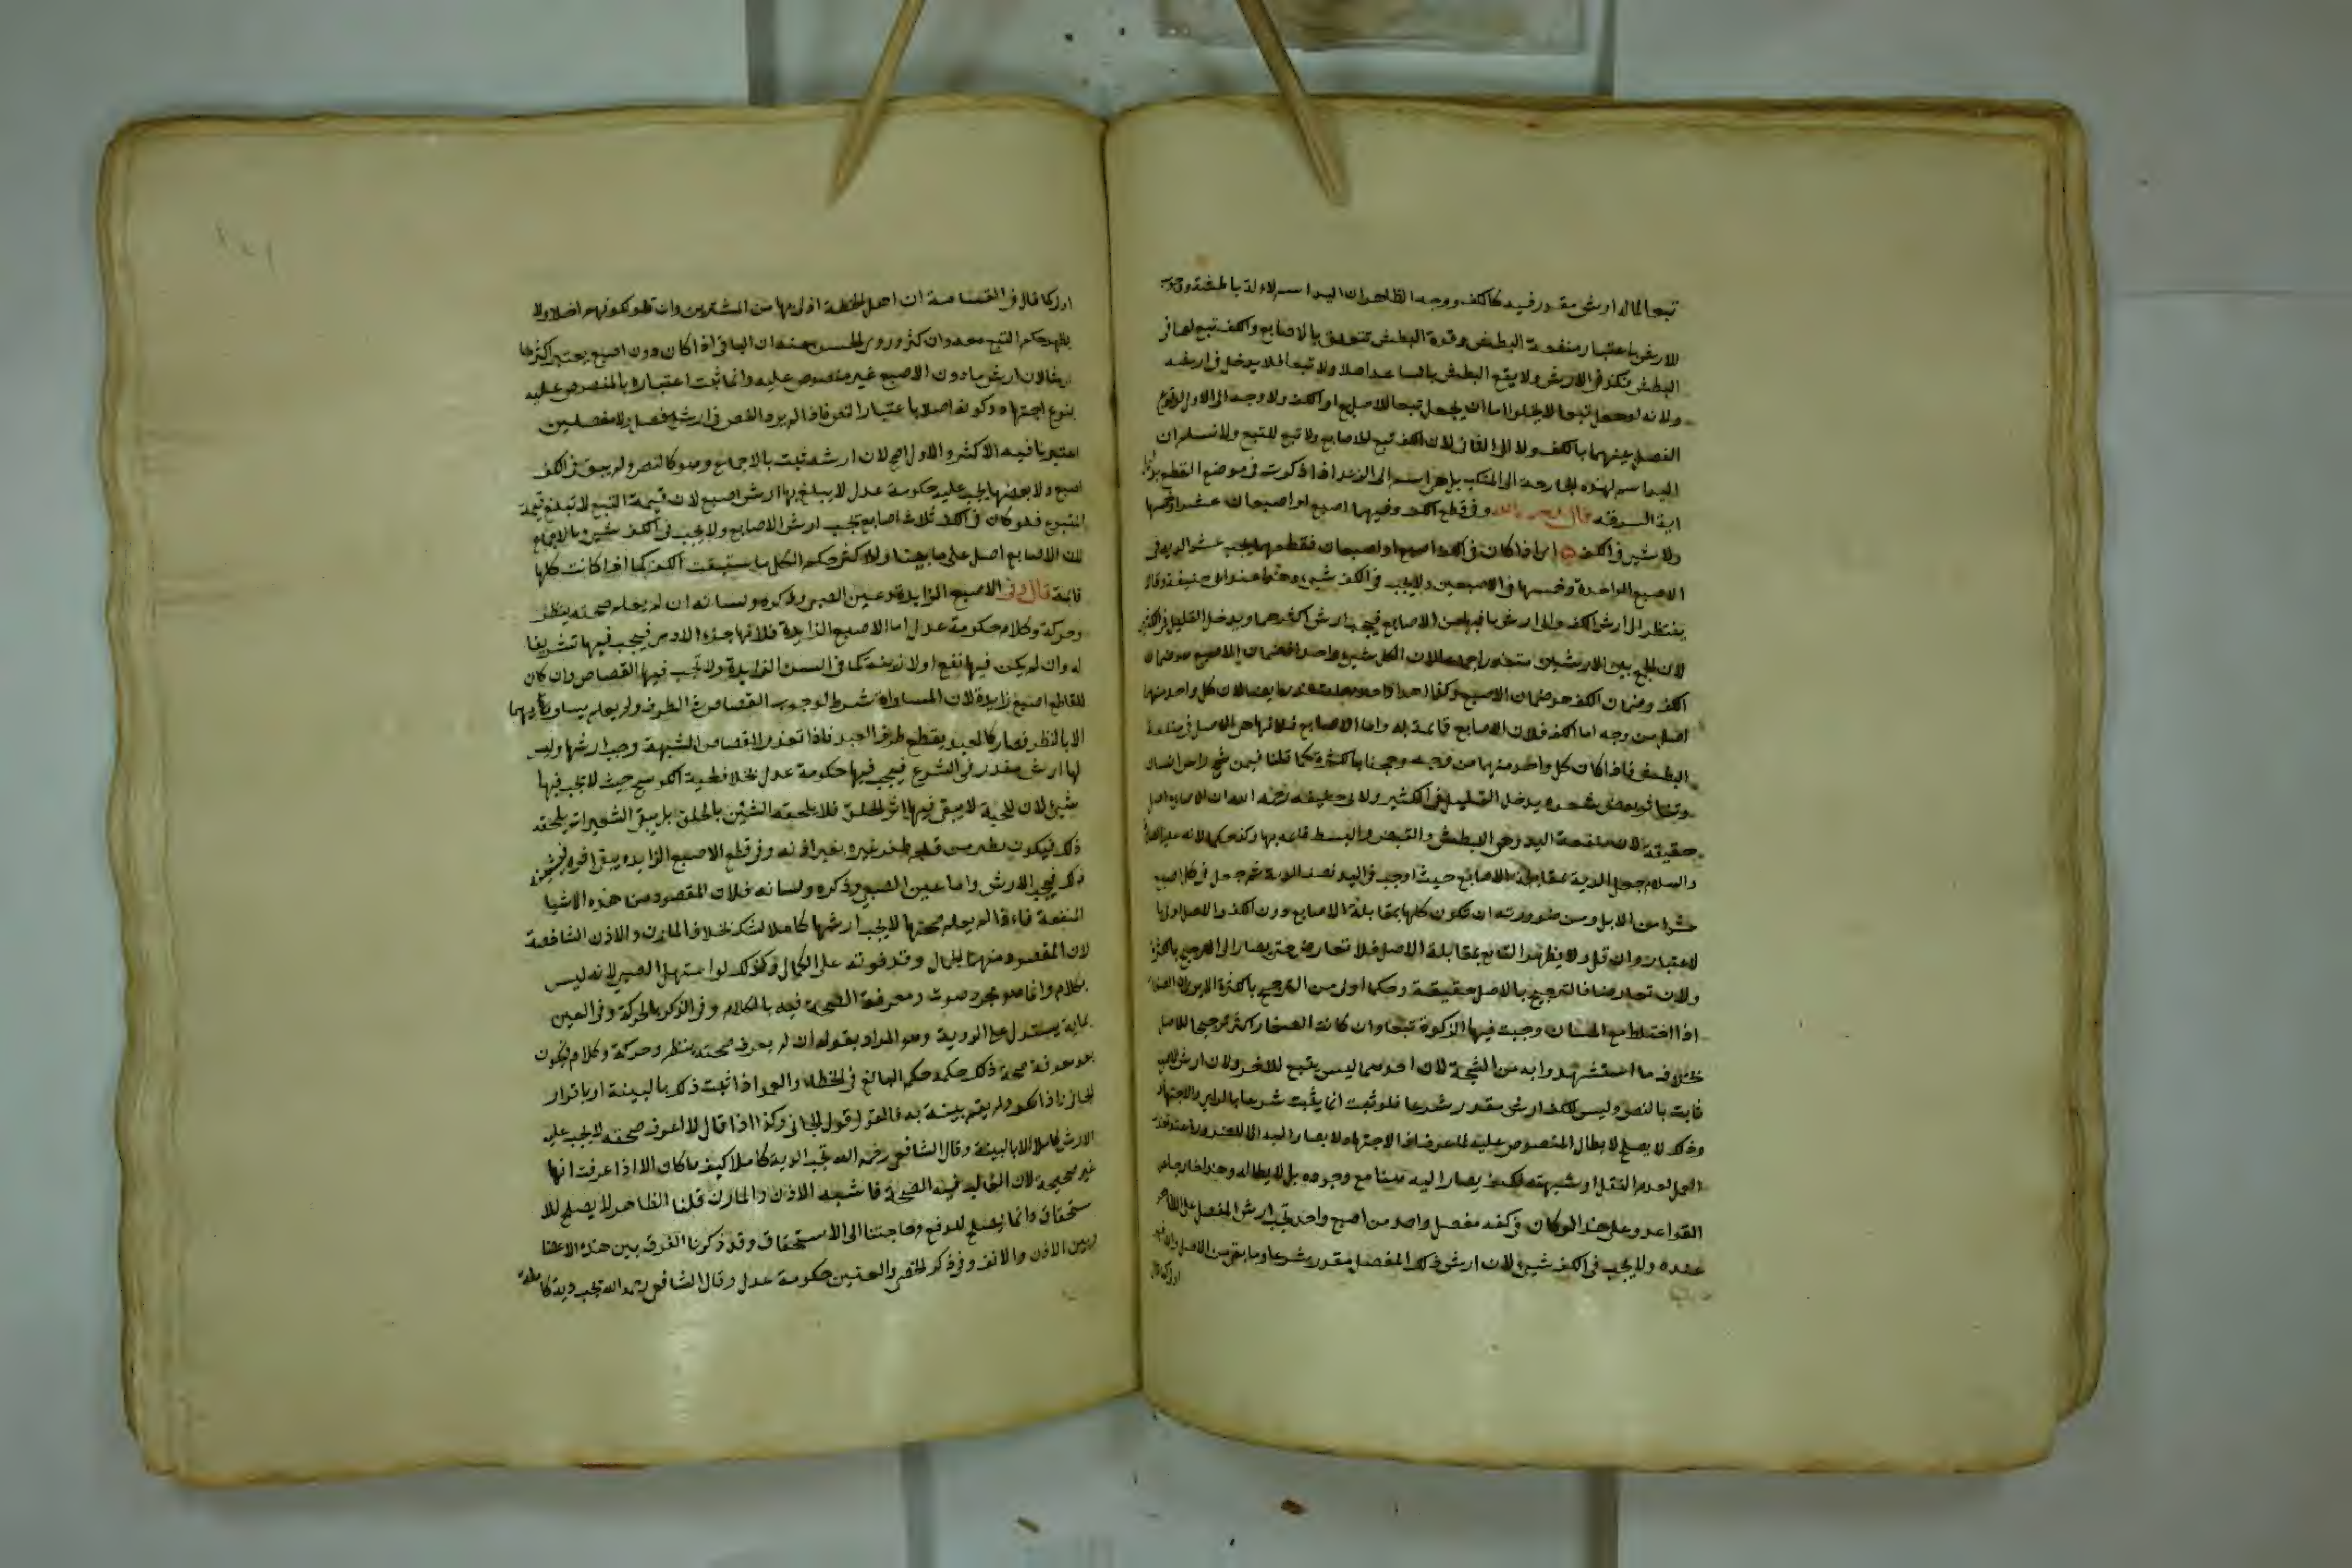 تبعا لماله ارش مقدر فيه كالكف ووجه الظاهر ان اليد اسم لالة باطشة
للارش باعتبار منفعة البطش وقوة البطش تتعلق بالاصابع والكف تبع لها في
البطش فكذا في الارش ولا يقع البطش بالساعد اصلا ولا تبعا فلا يدخل في ارشه
ولانه لو جعل تبعا لا يخلوا اما ان يجعل تبعا للاصابع او الكف ولا وجه الى الاول لوقوع
الفصل بينهما بالكف ولا الى الثاني لان الكف تبع للاصابع ولا تبع للتبع ولا نسلم ان
اليد اسم لهذه الجارحة الى المنكب بل هي اسم الى الزند اذا ذكرت في موضع القطع بدليل
اية السرقة قال رحمه الله وفي قطع الكف وفيها اصبع او اصبعان عشرها او خمسها
ولا شيء في الكف اي اذا كان في الكف اصبع او اصبعان فقطعها يجب عشر الدية في
الاصبع الواحدة وخمسها في الاصبعين ولا يجب في الكف شيء وهذا عند ابي حنيفة وقالا
ينظر الى ارش الكف والى ارش ما فيها من الاصابع فيجب ارش اكثرهما ويدخل القليل في الكثير
لان الجمع بين الارشين متعذر اجماعا لان الكل شيء واحد لضمان الاصبع هو ضمان
الكف وضمان الكف هو ضمان الاصبع وكذا اهدار احدهما متعذر ايضا لان كل واحد منهما
اصل من وجه اما الكف فلان الاصابع قائمة به واما الاصابع فلانها هي الاصل في منفعة
البطش فاذا كان كل واحد منهما من وجه رجحنا بالكثرة كما قلنا فيمن شج راس انسان
وتناثر بعض شعره يدخل القليل في الكثير ولابي حنيفة رحمه الله ان الاصابع اصل
حقيقة لان منفعة اليد وهي البطش والقبض والبسط قائمة بها وكذا حكما لانه عليه الصلاة
والسلام جعل الدية بمقابلة الاصابع حيث اوجب في اليد نصف الدية ثم جعل في كل اصبع
عشرا من الابل ومن ضرورته ان تكون كلها بمقابلة الاصابع دون الكف والاصل اولى با
لاعتبار وان قل ولا يظهر التابع بمقابلة الاصل فلا تعارض حتى يصار الى الترجيح بالكثرة
ولان تعارضا فالترجيح بالاصل حقيقة وحكما اولى من الترجيح بالكثرة الا يرى ان الصغار
اذا اختلط مع المسان وجبت فيها الزكوة تبعا وان كانت الصغار اكثر ترجيحا للاصل
بخلاف ما استشهد وا به من الشجة لان احدهما ليس بتبع للاخر ولان ارش الاصابع
ثابت بالنص وليس للكف ارش مقدر شرعا فلو ثبت انما يثبت شرعا بالراي والاجتهاد
وذلك لا يصلح لابطال المنصوص عليه لما عرف اذ الاجتهاد لا يصار اليه الا للضرورة
القواعد وعلى هذا لو كان في كفه مفصل واحد من اصبع واحد تجب ارش المفصل على الظاهر
عنده ولا يجب في الكف شيء لان ارش ذلك المفصل مقدر شرعا وما بقي من الاصل
اولى كما قال
اولى كما قال في القسامة ان اهل الخطة اولى بها من المشترين وان قلوا لكونهم اصلا ولا
يظهر حكم التبع معه وان كثر وروي الحسن عنه ان الباقي اذا كان دون اصبع يعتبر اكثرهما
ارشا لان ارش مادون الاصبع غير منصوص عليه وانما ثبت اعتباره بالمنصوص عليه
بنوع اجتهاد وكونه اصلا باعتبار النص فاذا لم يرد النص في ارش مفصل ولا مفصلين
اعتبرنا فيه الاكثر والاول اصح لان ارشه ثبت بالاجماع وهو كالنص ولو لم يبق في الكف
اصبع ولا بعضها يجب عليه حكومة عدل لا يبلغ بها ارش اصبع لان قيمة التبع لا تبلغ قيمة
المتبوع فلو كان في الكف ثلاث اصابع تجب ارش الاصابع ولا يجب في الكف شيء بالاجماع
لان الاصابع اصل على ما بينا وللاكثر حكم الكل فاستتبعت الكف كما اذا كانت كلها
قائمة قال وفي الاصبع الزايدة وعين الصبي وذكره ولسانه ان لم يعلم صحته بنظر
وحركة وكلام حكومة عدل اما الاصبع الزايدة فلانها جزء الادمي فيجب فيها تشريفا
له وان لم يكن فيها نفع ولا زينة كما في السن الزايدة ولا تجب فيها القصاص وان كان
للقاطع اصبع زايدة لان المساواة شرط لوجوب القصاص في الطرف ولم يعلم تساويهما
الا بالظن فصار كالعبد يقطع طرف العبد فاذا تعذر القصاص للشبهة وجب ارشها وليس
لها ارش مقدر في الشرع فيجب فيها حكومة عدل بخلاف لحية الكوسج حيث لا يجب فيها
شيء لان اللحية لا يبقى فيها اثر الحلق فلا يلحقه الشين بالحلق بل يبقى الشعيرات يلحقه
ذلك فيكون نظير من قلم ظفر غيره بغير اذنه وفي قطع الاصبع الزايدة يبقى اثره فيشينه
ذلك فيجب الارش واما عين الصبي وذكره ولسانه فلان المقصود من هذه الاشيا
المنفعة فاذا لم يعلم صحتها لا يجب ارشها كاملا للشك بخلاف المارن والاذن الشاخصة
لان المقصود منهما الجمال وقد فوته على الكمال وكذلك لو استهل الصبي لانه ليس
بكلام وانما هو مجرد صوت ومعرفة الصحة فيه بالكلام وفي الذكر بالحركة وفي العين
بما يستدل به على الروية وهو المراد بقوله ان لم يعرف صحته بنظر وحركة وكلام فيكون
بعد معرفة صحة ذلك حكمه حكم البالغ في الخطا والعمد اذا ثبت ذلك بالبينة او باقرار
الجاني اذا انكر ولم يقم بينة به فالقول قول الجاني وكذا اذا قال لا اعرف صحته لا يجب عليه
الارش كاملا الا بالبينة وقال الشافعي رحمه الله تجب الدية كاملا كيف ما كان الا اذا عرفت انها
غير صحيحة لان الغالب فيه الصحة فاشبه الاذن والمارن قلنا الظاهر لا يصلح للا
ستحقاق وانما يصلح للدفع وحاجتنا الى الاستحقاق وقد ذكرنا الفرق بين هذه الاعضا
وبين الاذن والانف وفي ذكر الخصي والعنين حكومة عدل وقال الشافعي رحمه الله تجب دية كاملة